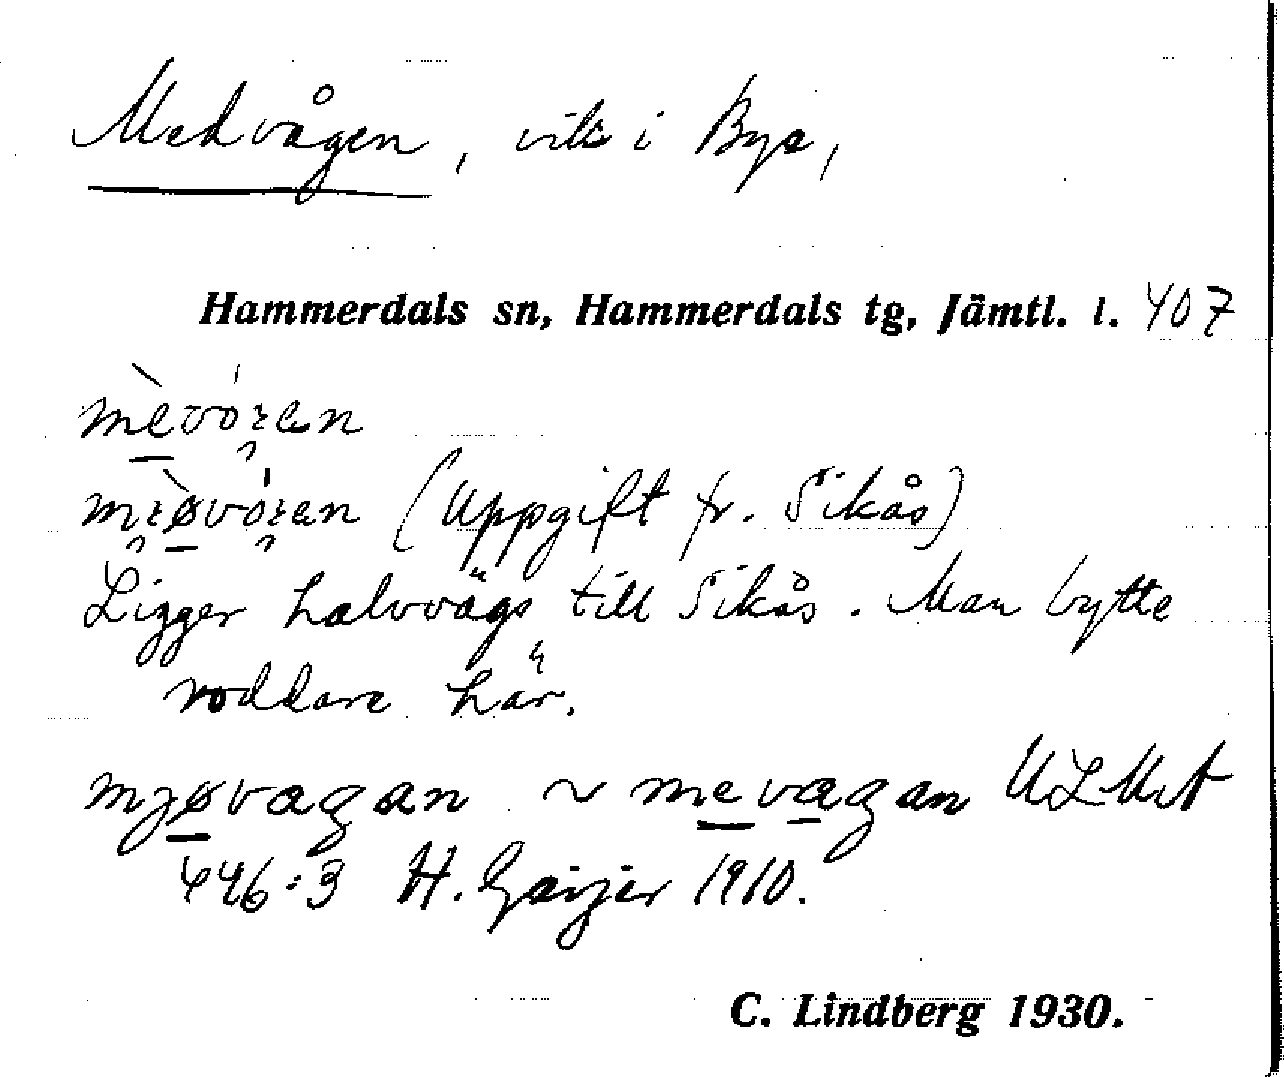 Medvågen, vik i Bye,
Hammerdals sn, Hammerdals tg, Jämtl. l. 407
Ligger halvvägs till Sikås. Man bytte
roddare här.
(Uppgift fr. Sikås)
mjøvagan ~ mevagan ULMA
446:3 H. Geijer 1910.
C. Lindberg 1930.